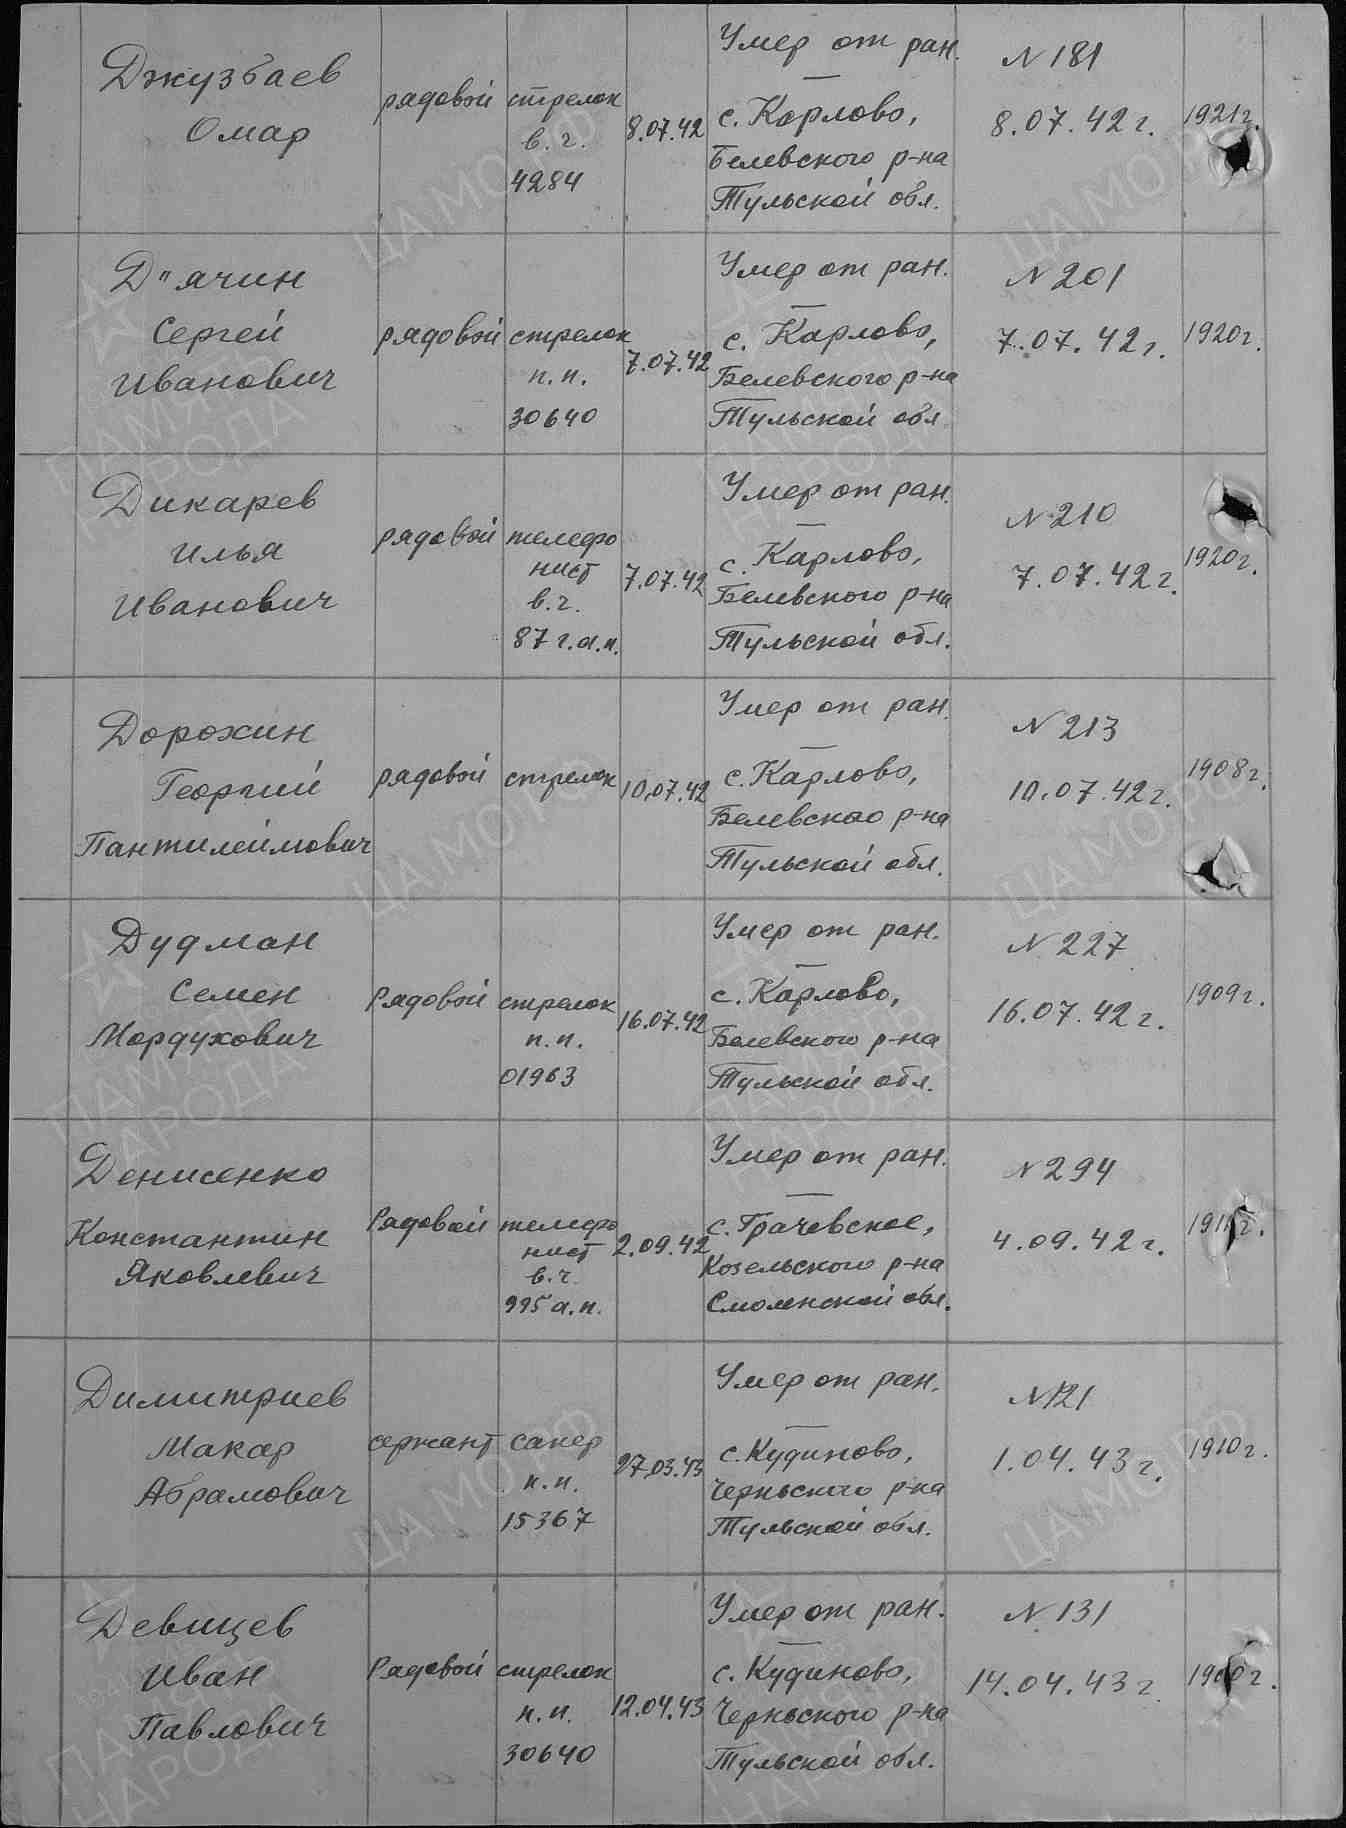 Джузбаев
Омар
рядовой
стрелок
в.ч.
4284
8.07.42
Умер от ран.
с. Карлово,
Белевского р-на
Тульской обл.
N 181
8.07.42 г.
1921г.
Д"ячин
Сергей
Иванович
рядовой
стрелок
п.п.
30640
7.07.42
Умер от ран.
с. Карлово,
Белевского р-на
Тульской обл
N 201
7.07.42 г.
1920г.
Дикарев
Илья
Иванович
рядовой
телефо
нист
в.ч.
87 г.а.п.
7.07.42
Умер от ран.
с. Карлово,
Белевского р-на
Тульской обл.
N 210
7.07.42 г.
1920г.
Дорохин
Георгий
Пантилеймович
рядовой
стрелок
10.07.42
Умер от ран.
с. Карлово,
Белевского р-на
Тульской обл.
N 213
10.07.42 г.
1908г.
Дудман
Семен
Мордухович
Рядовой
стрелок
п.п.
01963
16.07.42
Умер от ран.
с. Карлово,
Белевского р-на
Тульской обл.
N 227
16.07.42 г.
1909г.
Денисенко
Константин
Яковлевич
Рядовой
телефо
нист
в.ч.
995 а.п.
2.09.42
Умер от ран.
с. Грачевское,
Козельского р-на
Смоленской обл.
N 294
4.09.42 г.
Димитриев
Макар
Абрамович
сержант
сапер
п.п.
15367
27.03.43
Умер от ран.
с. Кудиново,
Черньского р-на
Тульской обл.
N 121
1.04.43 г.
1910г.
Девицев
Иван
Павлович
Рядовой
стрелок
п.п.
30640
12.04.43
Умер от ран.
с. Кудиново,
Черньского р-на
Тульской обл.
N 131
14.04.43 г.
ЦА МО РФ
ПАМЯТЬ
НАРОДА